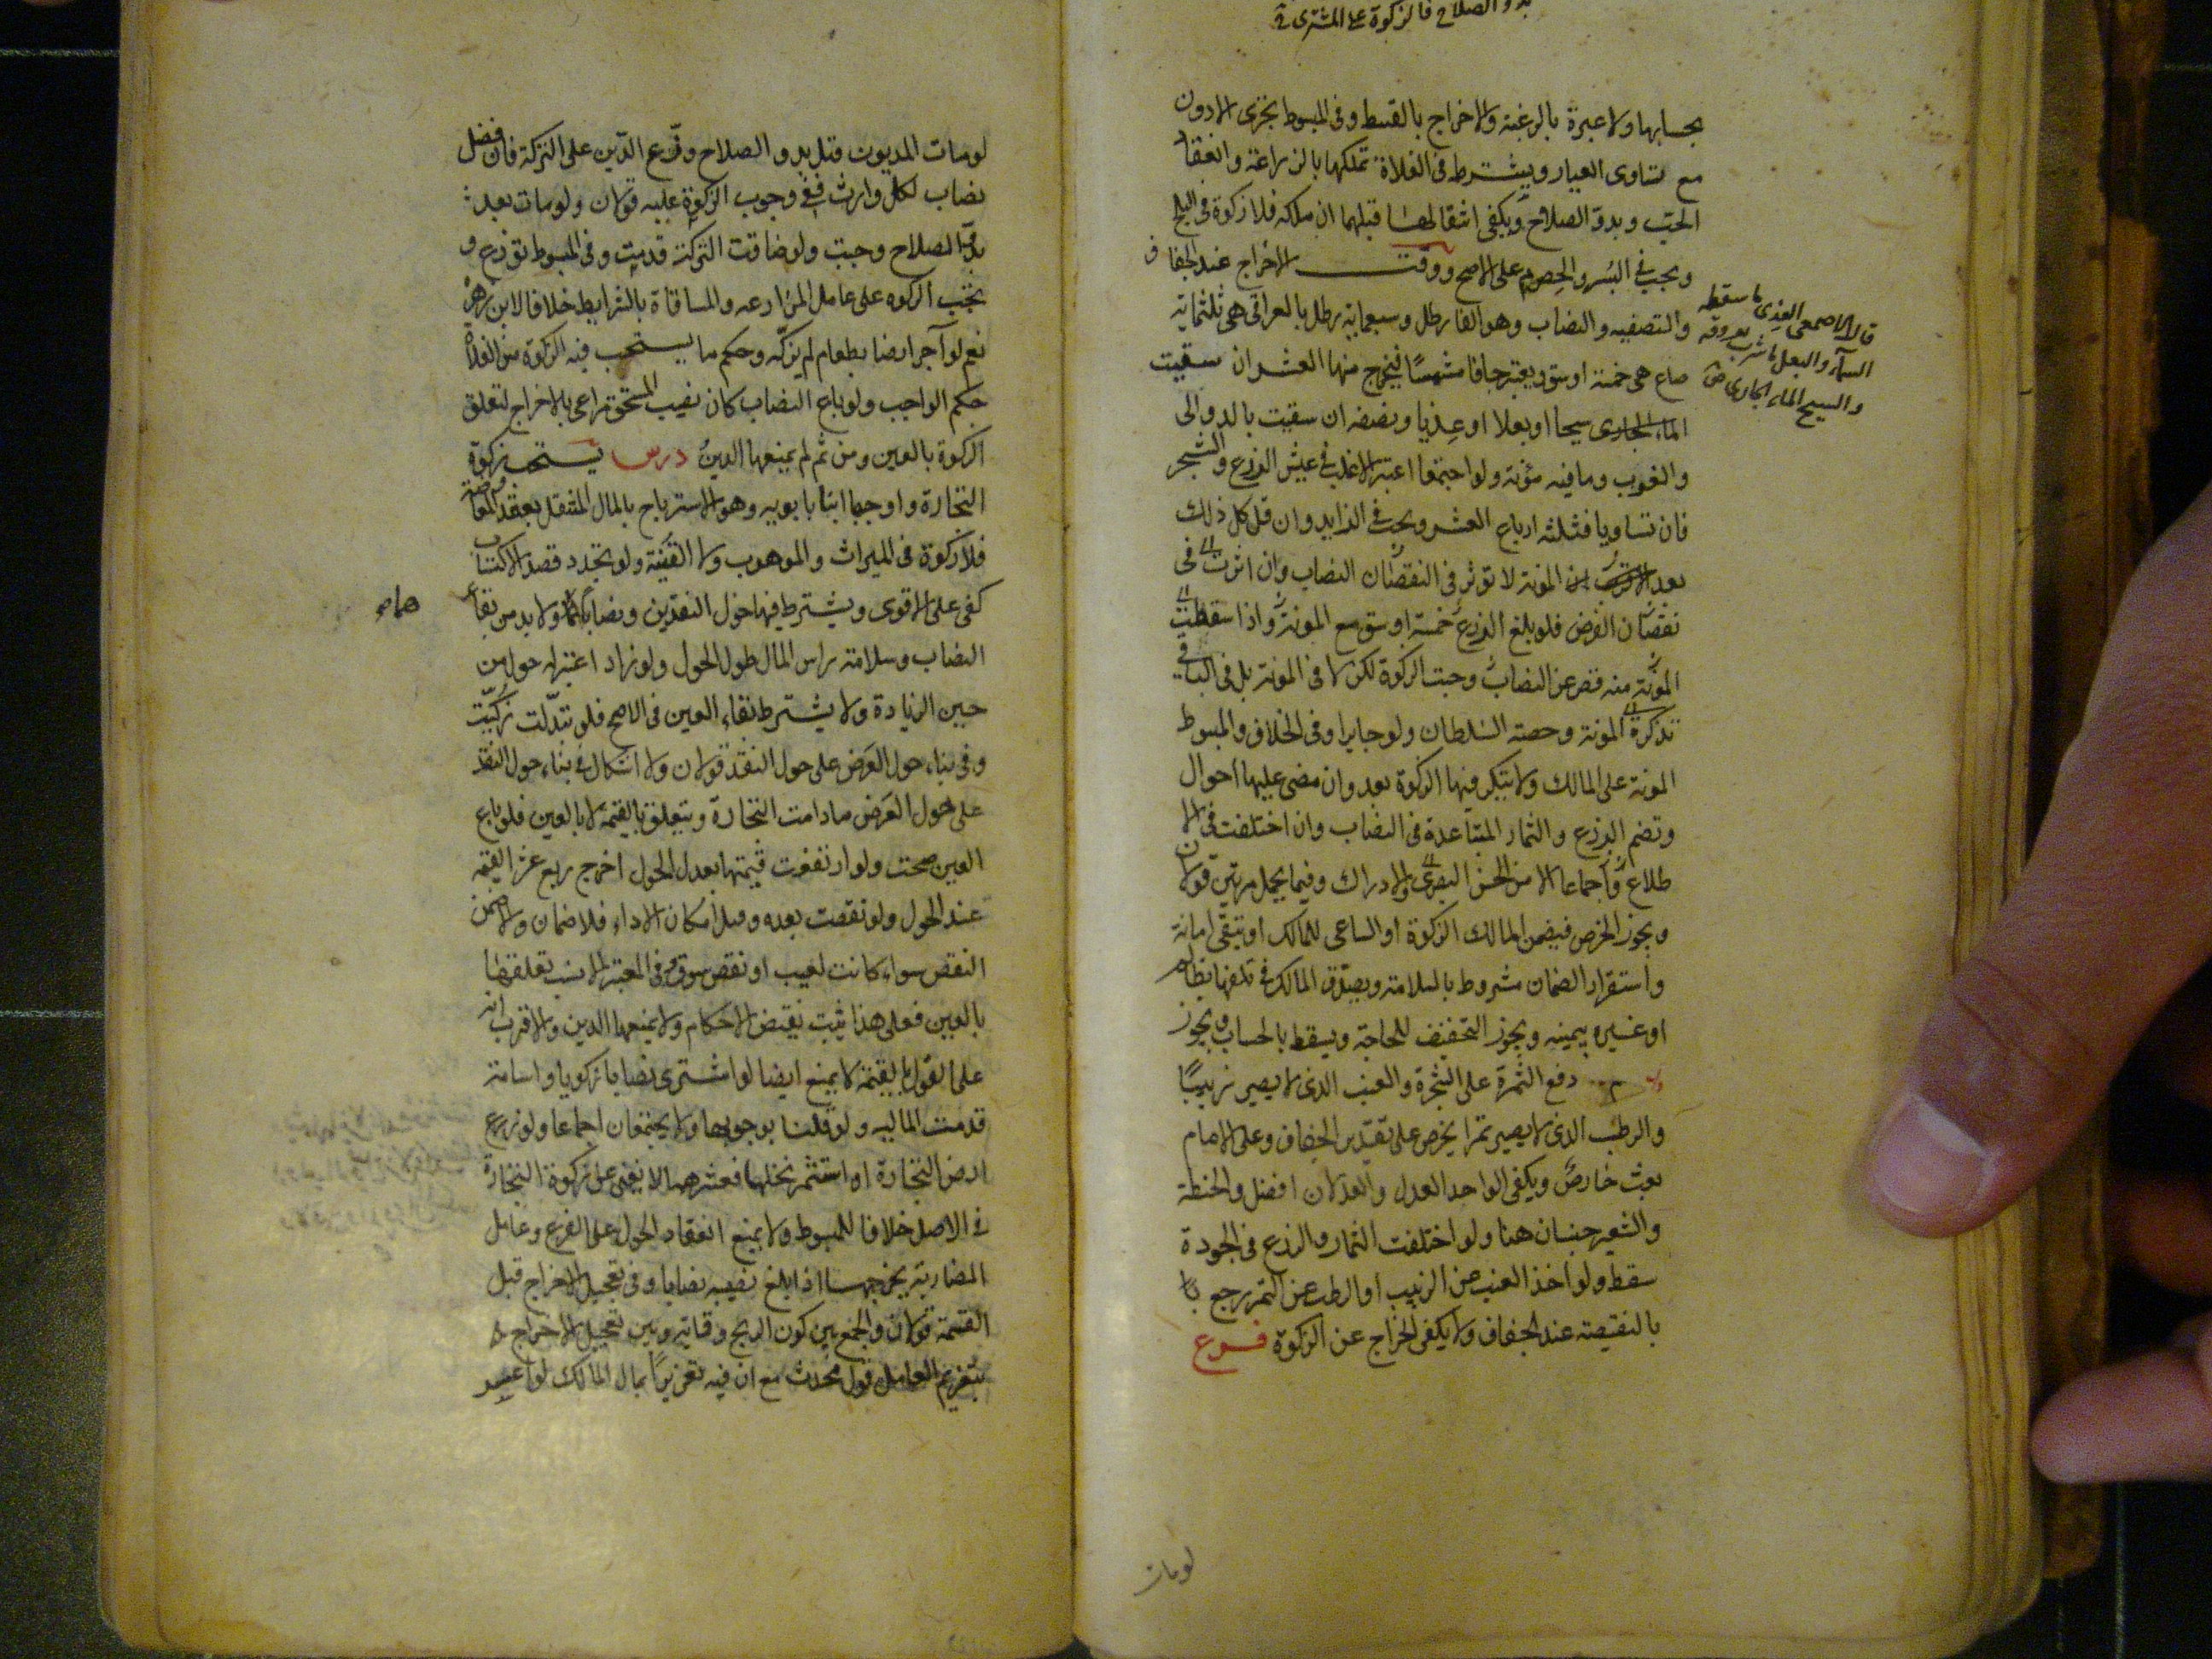 بدو الصلاح فالزكوة على المشترى
بحسابها ولا عبرة بالرغبة والاخراج بالقسط وفى المبسوط يجزى الادون
مع تساوى العيار ويشترط فى الغلاة تملكها بالزراعة وانعقاد
الحبّ وبدوّ الصلاح ويكفى انتقالها قبلهما الى ملكه فلا زكوة فى البلح
ويجب فى البُسر والحِصرم على الاصح ووقت الاخراج عند الجفاف
والتصفيه والنصاب وهو الفا رطل وسبعماية رطل بالعراقى هى ثلثماية
صاع هى خمسة اوسق ويعتبر جافا مشمسًا فيخرج منها العشر ان سقيت
سيحا او بعلا او عِذيا ونصفه ان سقيت بالدوالى
والغرب وما فيه مؤنة ولو اجتمعا اعتبر الاغلب فى عيش الزرع والشجر
فان تساويا فثلثة ارباع العشر ويجب فى الزايد وان قل كل ذلك
بعد المونة لا تؤثر فى النقصان النصاب وان اثرت فى
نقصان الفرض فلو بلغ الزرع خمسة اوسق مع المونة واذا سقطت
المؤنة منه قصر عن النصاب وجبت الزكوة لكن لا فى المونة بل فى الباقى
تذكرة المونة وحصة السلطان ولو جايرا وفى الخلاف والمبسوط
المونة على المالك ولا يتكرر فيها الزكوة بعد وان مضى عليها احوال
وتضم الزرع والثمار المتباعدة فى النصاب وان اختلفت فى الا
طلاع اجماعا الا من الحسن البصرى والادراك وفيما يحمل مرتين قولان
ويجوز الخرص فيضمن المالك الزكوة او الساعى للمالك او تبقى امانة
واستقرار الضمان مشروط بالسلامة ويصدّق المالك فى تلفها بظالم
او غيره بيمينه ويجوز التخفيف للحاجة ويسقط بالحساب ويجوز
دفع الثمرة على الشجرة والعنب الذى لا يصير زبيبًا
والرطب الذى لا يصير تمرا يخرص على تقدير الجفاف وعلى الامام
بعث خارص ويكفى الواحد العدل والعدلان افضل والحنطة
والشعير جنسان هنا ولو اختلفت الثمار والزرع فى الجودة
سقط ولو اخذ العنب عن الزبيب او الرطب عن التمر رجع
بالنقيصة عند الجفاف ولا يكفى الخراج عن الزكوة فرع
قال الاصمعى العذى ما سقطه
السماء والبعل ما شرب بعروقه
والسيح الماء الجارى
لومات
لومات المديون قبل بدو الصلاح وقّع الدّين على التركة فان فضل
نصاب لكل وارث ففى وجوب الزكوة عليه قولان ولو مات بعد
بدوّ الصلاح وجبت ولو ضاقت التركة قدمت وفى المبسوط توزع و
تجب الزكوة على عامل المزارعه والمساقاة بالشرايط خلافا لابن زهرة
نعم لو آجر ارضا بطعام لم يزكّه وحكم ما يستحب فيه الزكوة من الغلاة
حكم الواجب ولو باع النصاب كان نصيب المستحق مراعى بالاخراج لتعلق
الزكوة بالعين ومن ثم لم يمنعها الدينُ درس يستحب زكوة
التجارة واوجبها ابنا بابويه وهو الاسترباح بالمال المنتقل بعقد المعاوضة
فلا زكوة فى الميراث والموهوب ولا القنية ولو تجدد قصد الاكتساب
كفى على الاقوى ويشترط فيها حول النقدين ونصابهما ولا بد من بقاء
النصاب وسلامة راس المال طول الحول ولو زاد اعتبر له حول من
حين الزيادة ولا يشترط بقاء العين فى الاصح فلو تبدّلت زُكيّت
وفى بناء حول العَرض على حول النقد قولان ولا اشكال فى بناء حول النقد
على حول العَرض ما دامت التجارة ويتعلق بالقيمة لا بالعين فلو باع
العين صحت ولو ارتفعت قيمتها بعد الحول اخرج ربع عشر القيمة
عند الحول ولو نقصت بعده وقبل امكان الاداء فلا ضمان والا ضمن
النقص سواء كانت لعيب او نقص سوق وفى المعتبر الانسب تعلقها
بالعين فعلى هذا يثبت نقيض الاحكام ولا يمنعها الدين والاقرب انه
على القول بالقيمة لا يمنع ايضا لو اشترى نصابا زكويا واسامه
قدمت المالية ولو قلنا بوجوبها ولا يجتمعان اجماعا ولو زرع
ارض التجارة او استثمر نخلها فعشرهما لا يغنى عن زكوة التجارة
فى الاصل خلافا للمبسوط ولا يمنع انعقاد الحول على الفرع وعامل
المضاربة يخرجها اذا بلغ نصيبه نصابا وفى تعجيل الاخراج قبل
القسمة قولان والجمع بين كون الربح وقاية وبين تعجيل الاخراج
بتغريم العامل قول محدث مع ان فيه تغريرًا بمال المالك لو اعسر